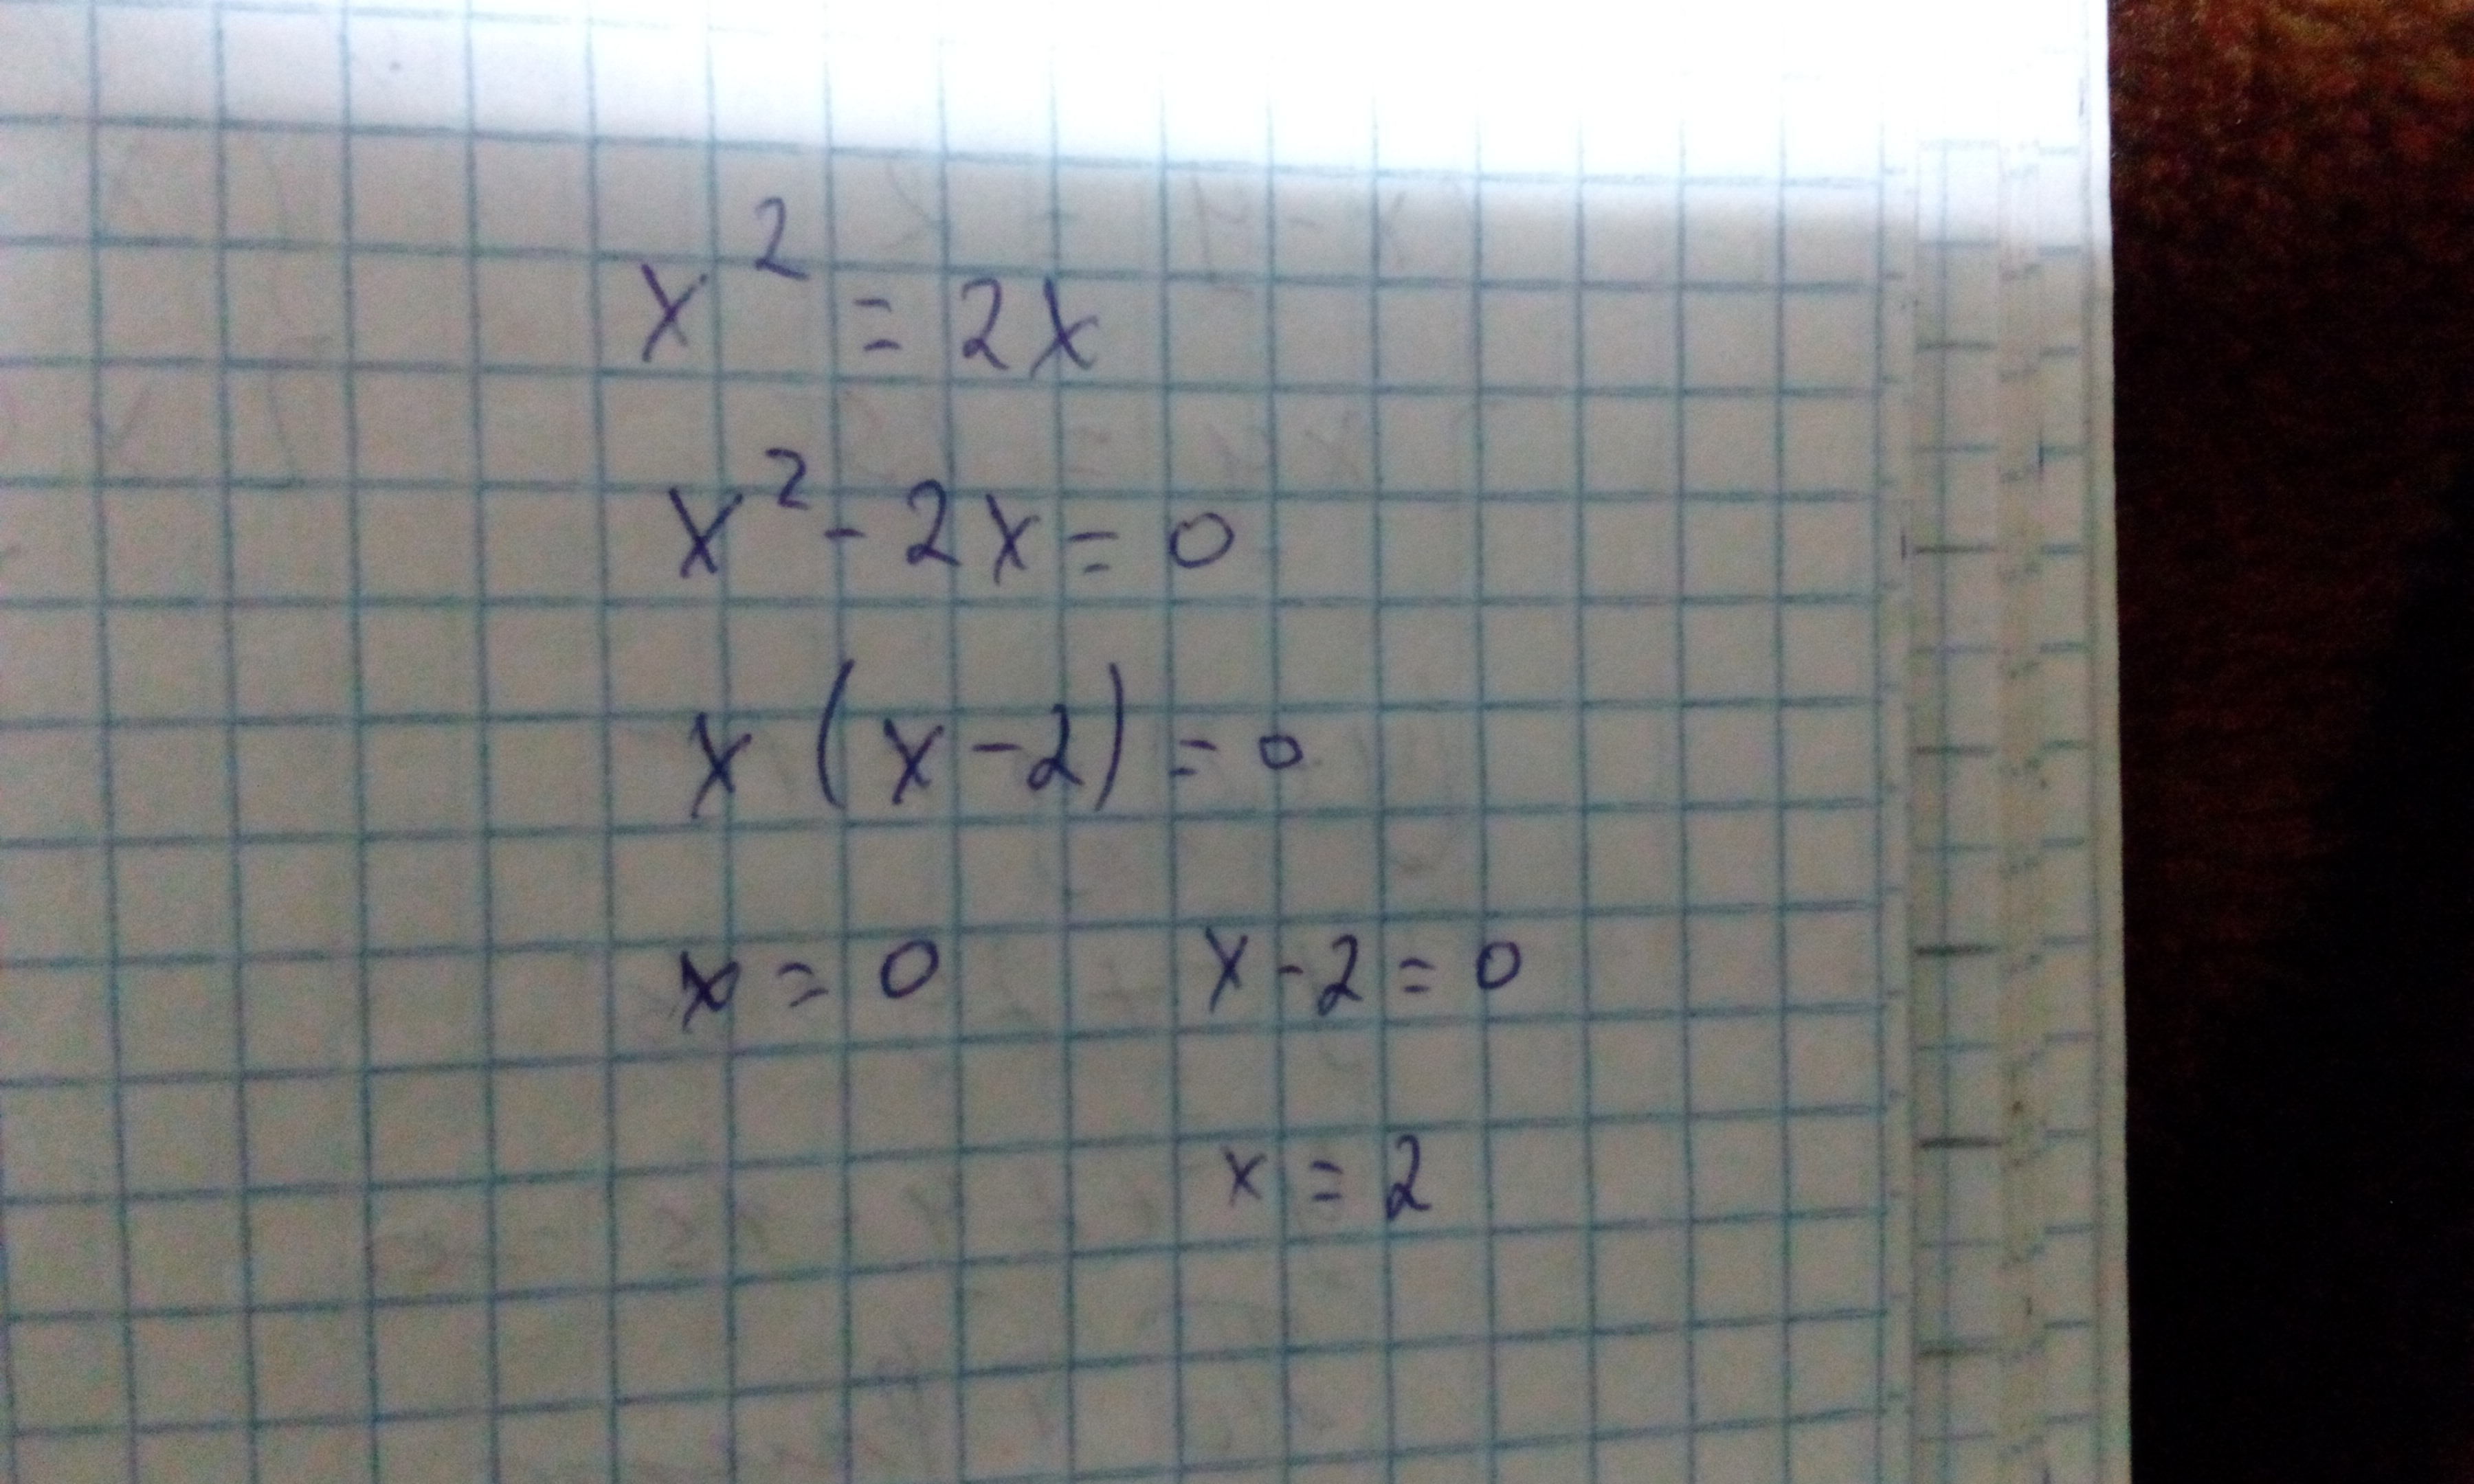 x² = 2x
x² - 2x = 0
x (x - 2) = 0
x = 0 x - 2 = 0
x = 2